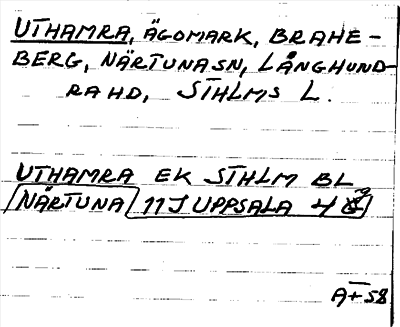 UTHAMRA, ÄGOMARK, BRAHE-
BERG, NÄRTUNA SN, LÅNGHUND-
RA HD, STHLMS L.
UTHAMRA EK STHLM BL
NÄRTUNA 11J UPPSALA 4
A+58